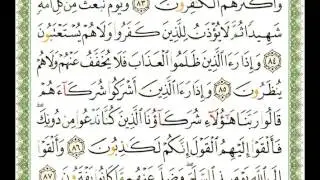 وَأَكْثَرُهُمُ ٱلْكَٰفِرُونَ ٨٣ وَيَوْمَ نَبْعَثُ مِن كُلِّ أُمَّةٍ
شَهِيدًا ثُمَّ لَا يُؤْذَنُ لِلَّذِينَ كَفَرُوا۟ وَلَا هُمْ يُسْتَعْتَبُونَ
٨٤ وَإِذَا رَءَا ٱلَّذِينَ ظَلَمُوا۟ ٱلْعَذَابَ فَلَا يُخَفَّفُ عَنْهُمْ وَلَا هُمْ
يُنظَرُونَ ٨٥ وَإِذَا رَءَا ٱلَّذِينَ أَشْرَكُوا۟ شُرَكَآءَهُمْ
قَالُوا۟ رَبَّنَا هَٰٓؤُلَآءِ شُرَكَآؤُنَا ٱلَّذِينَ كُنَّا نَدْعُوا۟ مِن دُونِكَ
فَأَلْقَوْا۟ إِلَيْهِمُ ٱلْقَوْلَ إِنَّكُمْ لَكَٰذِبُونَ ٨٦ وَأَلْقَوْا۟ إِلَى
ٱللَّهِ يَوْمَئِذٍ ٱلسَّلَمَ وَضَلَّ عَنْهُم مَّا كَانُوا۟ يَفْتَرُونَ ٨٧